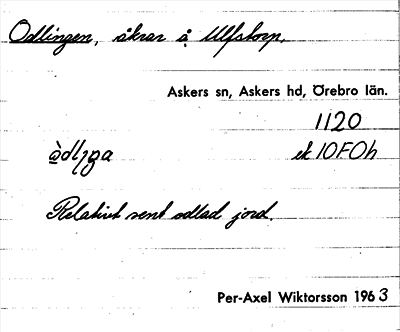 Odlingen, åkrar å Ulfstorp.
Askers sn, Askers hd, Örebro län.
1120
ek 10F0h
Relativt sent odlad jord.
Per-Axel Wiktorsson 1963